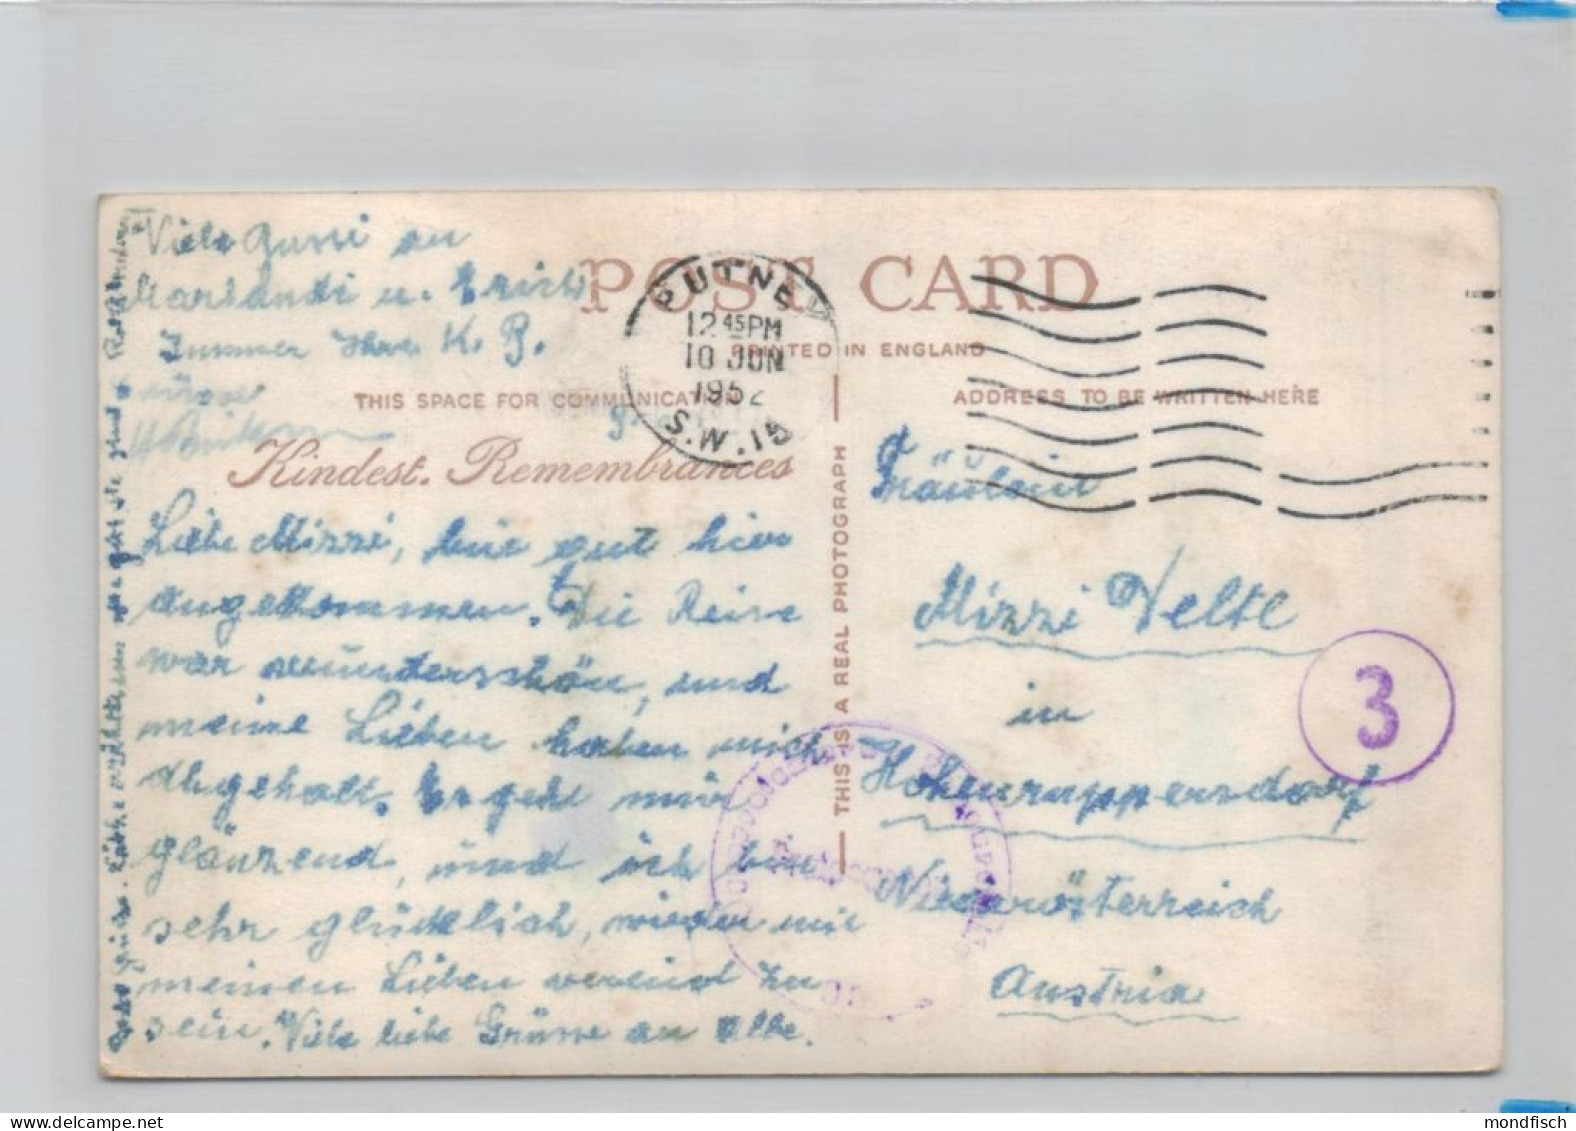 Viele Bussi an
u. Erich
Immer Ihre K. P.
POST CARD
PRINTED IN ENGLAND
THIS SPACE FOR COMMUNICATION
ADDRESS TO BE WRITTEN HERE
PUTNEY
12 45 PM
10 JUN
1952
S.W.15
Kindest Remembrances
Liebe Mizzi, bin gut hier
angekommen. Die Reise
war wunderschön, und
meine Lieben haben mich
abgeholt. Es geht mir
glänzend, und ich bin
sehr glücklich, wieder mit
meinen Lieben vereint zu
sein. Viele liebe Grüsse an Alle.
THIS IS A REAL PHOTOGRAPH
Fräulein
Mizzi Veltl
in
Hohenruppersdorf
Niederösterreich
Austria
3
mondfisch